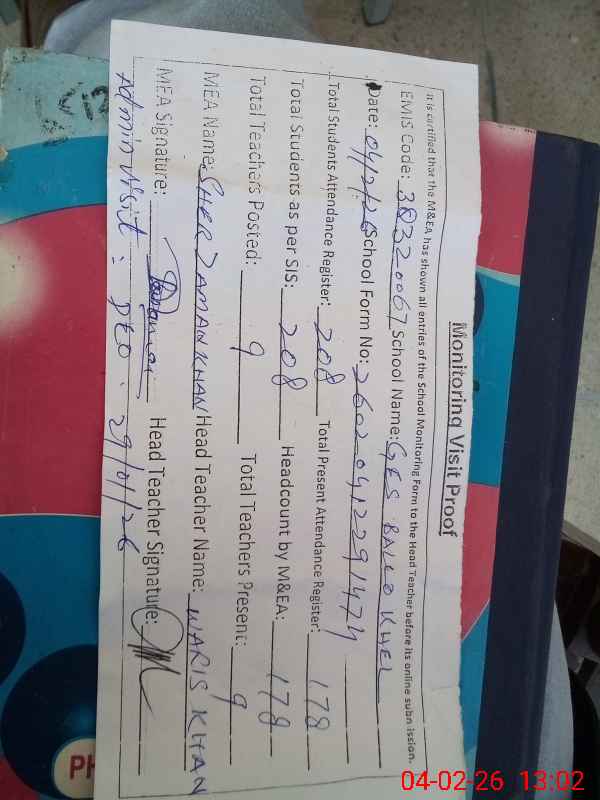 Monitoring Visit Proof
It is certified that the M&EA has shown all entries of the School Monitoring Form to the Head Teacher before its online submission.
EMIS Code: 38320067 School Name: GES BALLO KHEL
Date: 04/2/26 School Form No: 2602041229147
Total Students Attendance Register: 208 Total Present Attendance Register: 178
Total Students as per SIS: 208 Headcount by M&EA: 178
Total Teachers Posted: 9 Total Teachers Present: 9
MEA Name: SHER ZAMAN KHAN Head Teacher Name: WARIS KHAN
MEA Signature: Head Teacher Signature:
Admin Visit: DEO. 29/01/26
PH
04-02-26 13:02